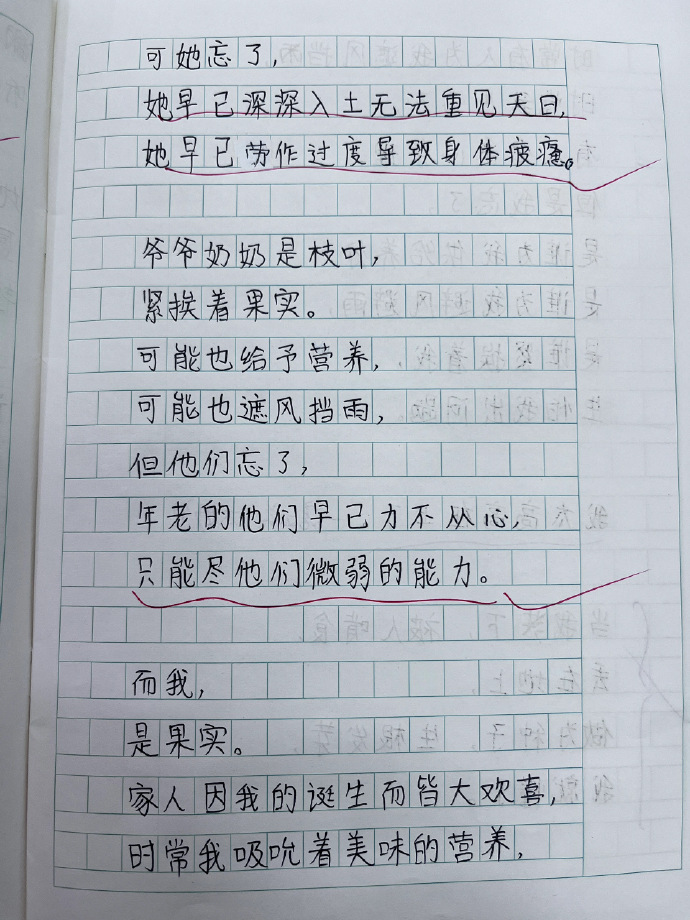 可她忘了,
她早已深深入土无法重见天日,
她早已劳作过度导致身体疲惫。
爷爷奶奶是枝叶,
紧挨着果实。
可能也给予营养,
可能也遮风挡雨,
但他们忘了,
年老的他们早已力不从心,
只能尽他们微弱的能力。
而我,
是果实。
家人因我的诞生而皆大欢喜,
时常我吸吮着美味的营养,